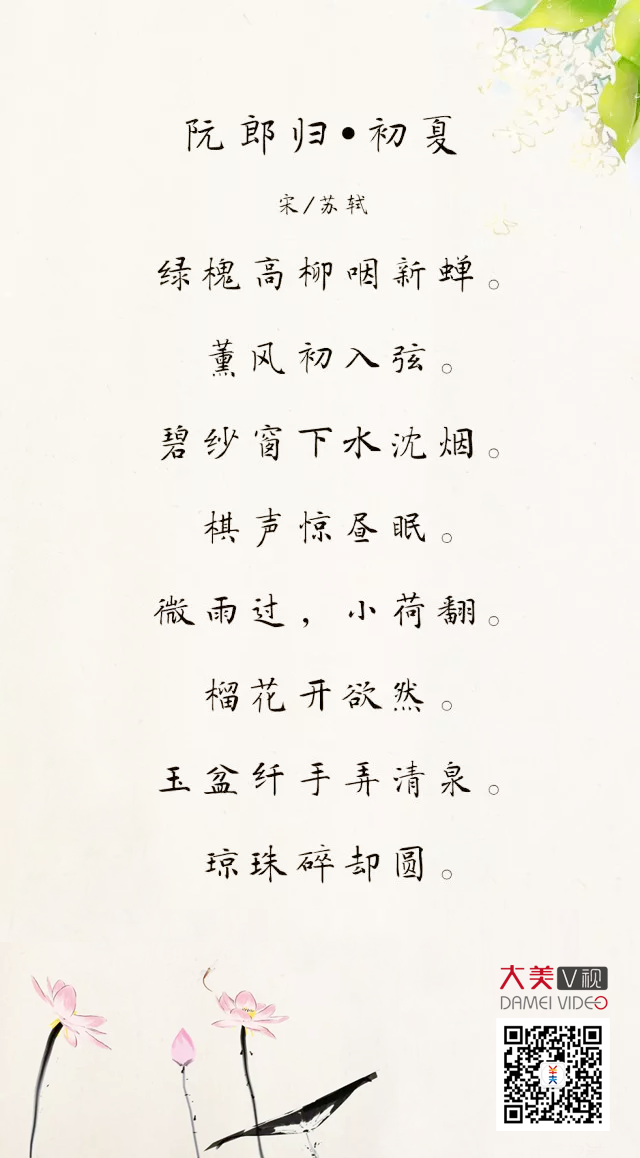 阮郎归•初夏
宋/苏轼
绿槐高柳咽新蝉。
薰风初入弦。
碧纱窗下水沈烟。
棋声惊昼眠。
微雨过，小荷翻。
榴花开欲然。
玉盆纤手弄清泉。
琼珠碎却圆。
大美V视
DAMEI VIDEO